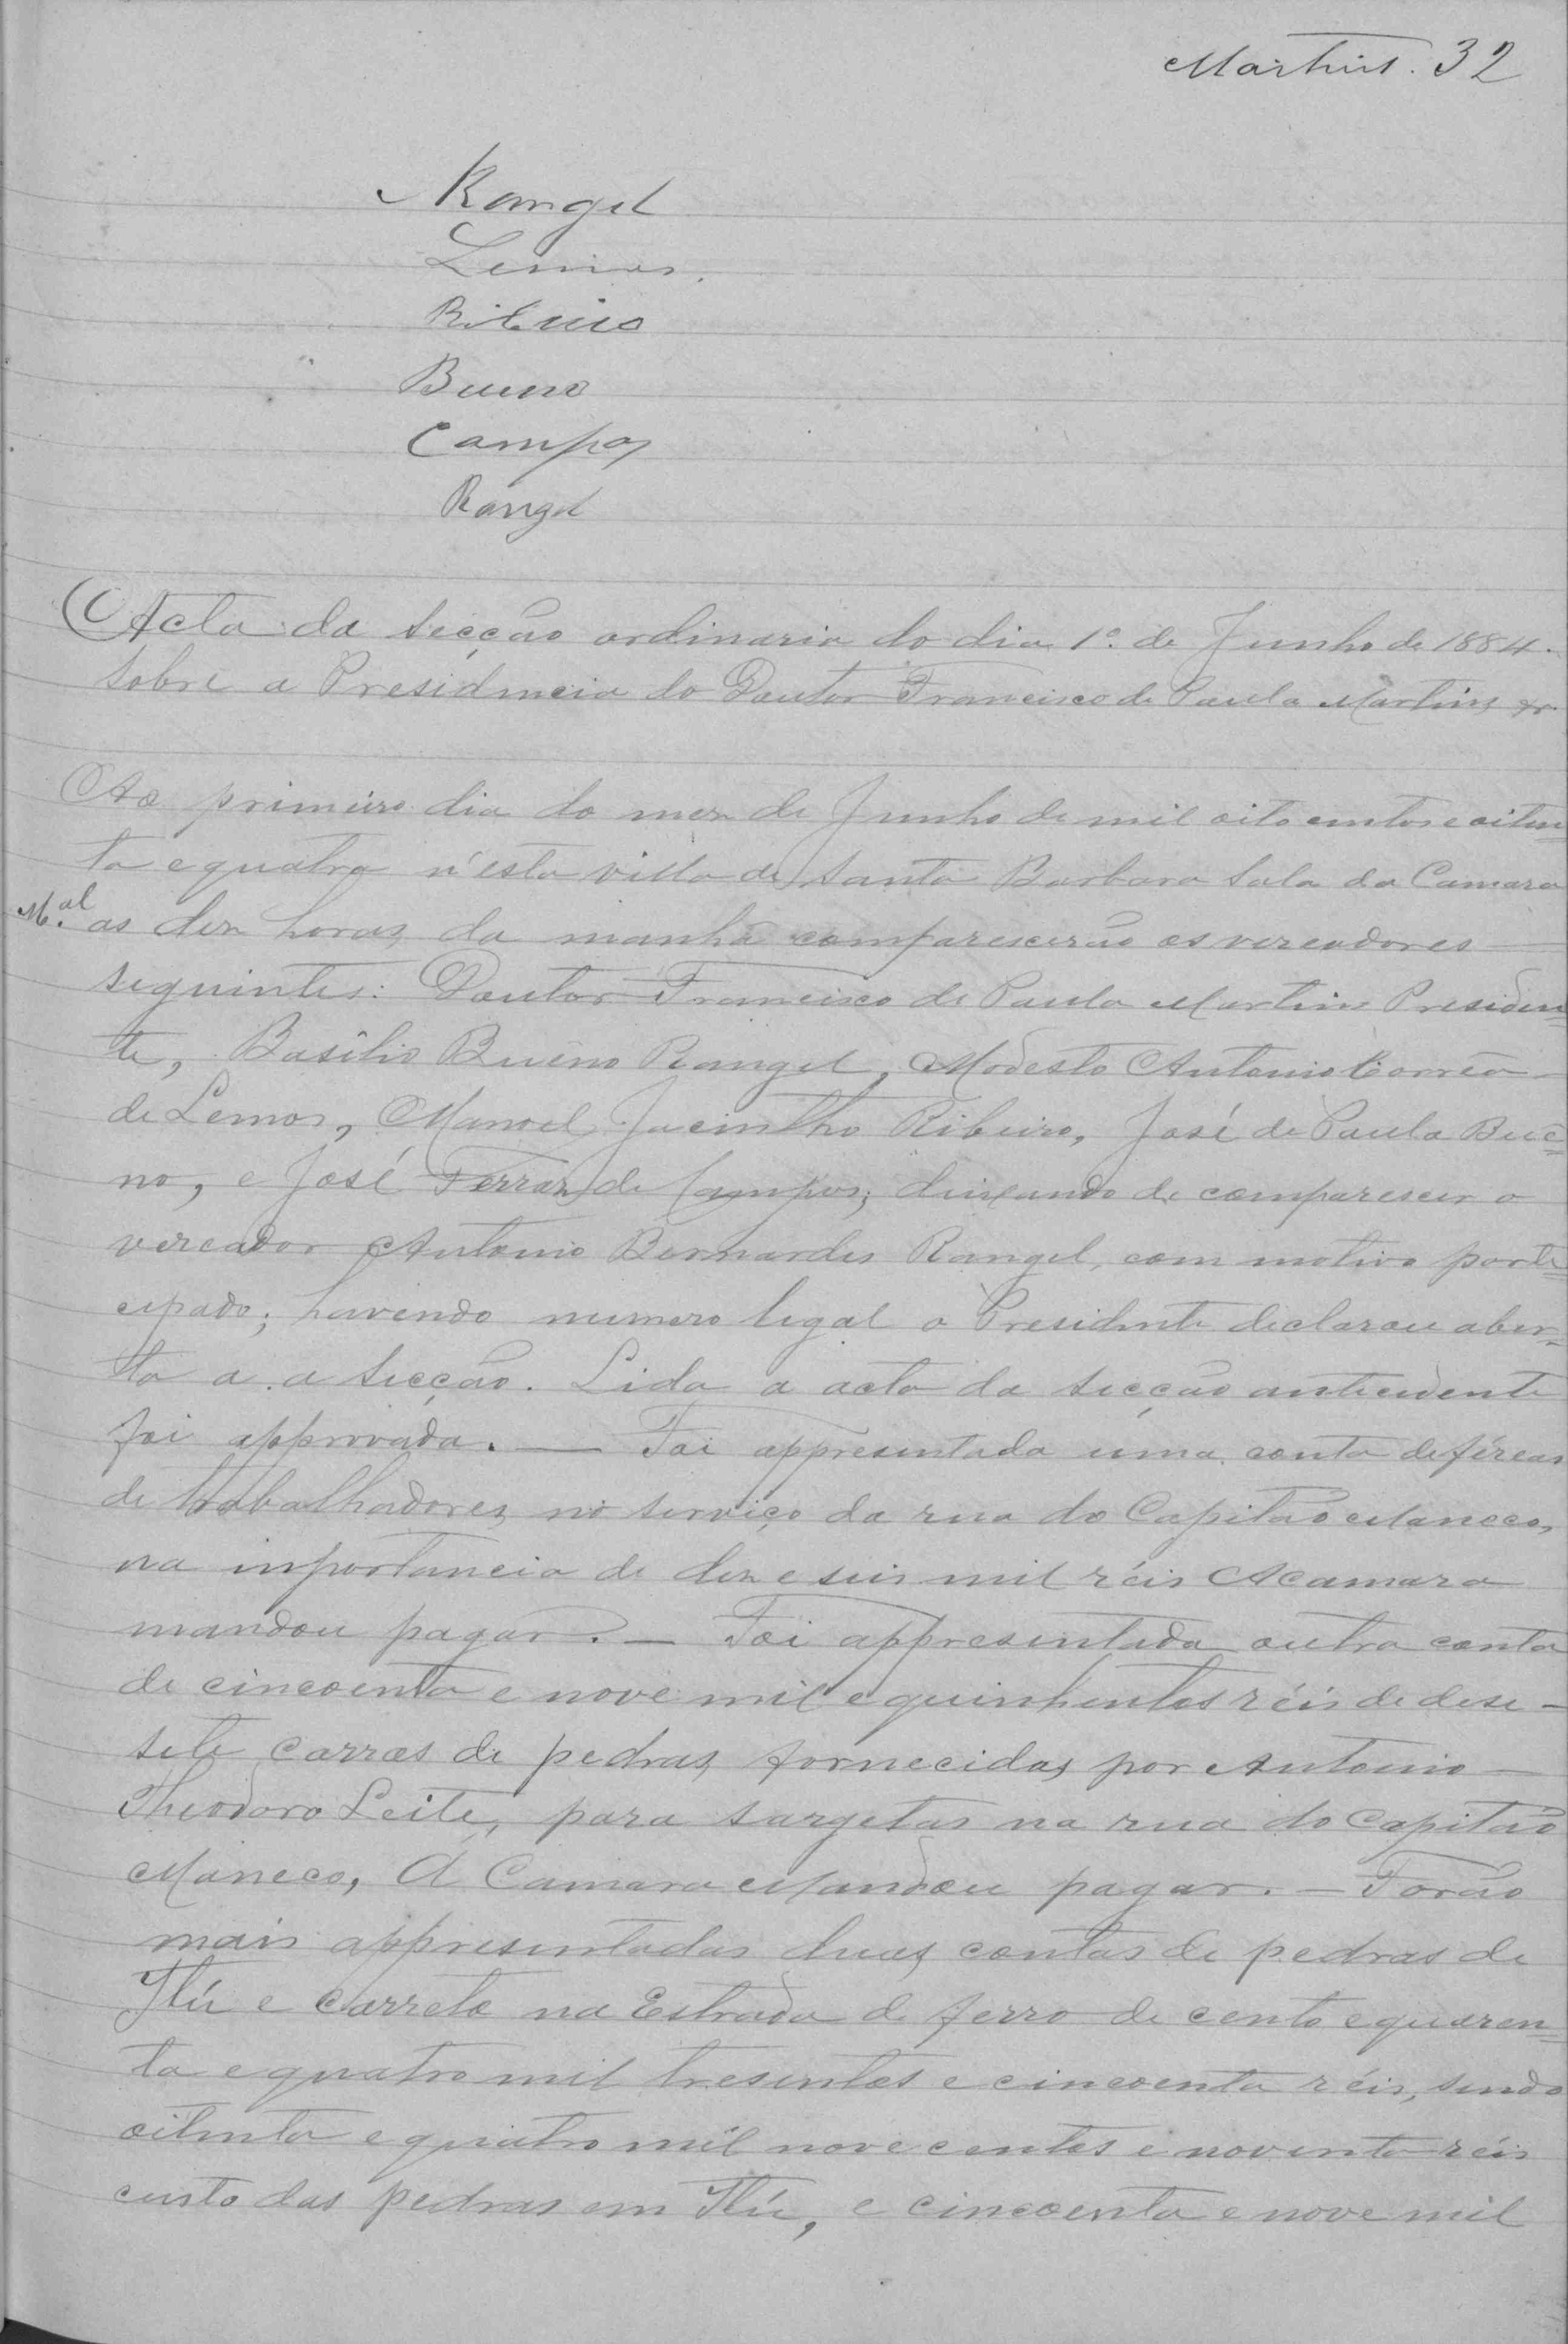 Martins. 32
Rangel
Lemos.
Ribeiro
Bueno
Campos
Rangel
Acta da secção ordinaria do dia 1º. de Junho de 1884.
Sobre a Presidencia do Doutor Francisco de Paula Martins &.
Ao primeiro dia do mez de Junho de mil oito centos e oiten=
ta e quatro n'esta villa de Santa Barbara Sala da Camara
M.al as dez horas da manhã comparescerão os vereadores
seguintes: Doutor Francisco de Paula Martins Presiden=
te, Basilio Bueno Rangel, Modesto Antonio Corrêa
de Lemos, Manoel Jacintho Ribeiro, José de Paula Bue=
no, e José Ferraz de Campos; deixando de comparescer o
vereador Antonio Bernardes Rangel, com motivo parti=
cipado; havendo numero legal o Presidente declarou aber=
ta a a secção. Lida a acta da secção antecedente
foi approvada. — Foi appresentada uma conta de féreas
de trabalhadores no serviço da rua do Capitão Maneco,
na importancia de dez e seis mil réis A camara
mandou pagar. — Foi appresentada outra conta
de cincoenta e nove mil e quinhentos réis de dese-
sete carros de pedras fornecidas por Antonio
Theodoro Leite, para sargetas na rua do Capitão
Maneco, A Camara Mandou pagar. — Forão
mais appresentadas duas contas de pedras de
Itú e carreto na Estrada de ferro de cento e quaren=
ta e quatro mil tresentos e cincoenta réis, sendo
oitenta e quatro mil nove centos e noventa réis
custo das pedras em Itú, e cincoenta e nove mil